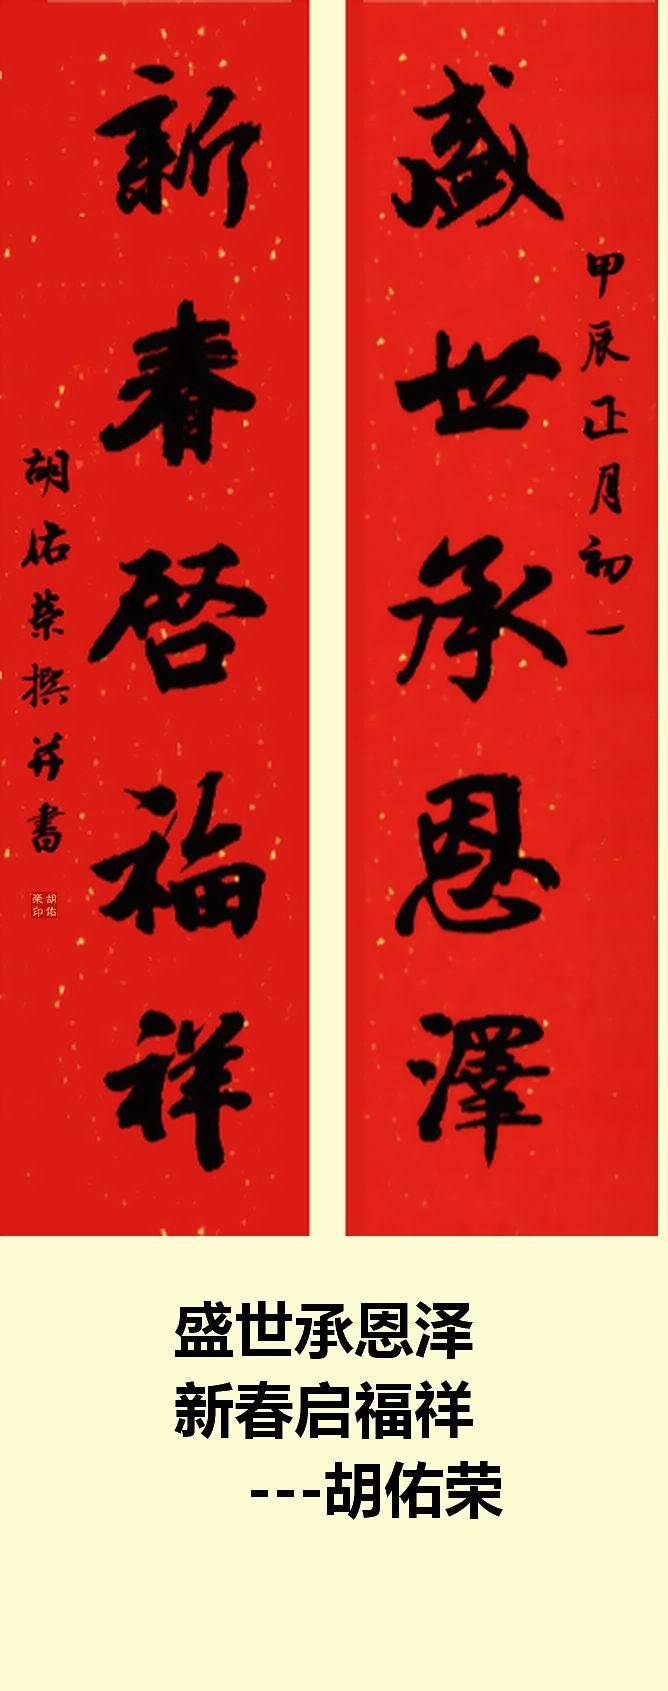 盛世承恩澤
甲辰正月初一
新春啓福祥
胡佑荣撰并書
胡佑
榮印
盛世承恩泽
新春启福祥
---胡佑荣